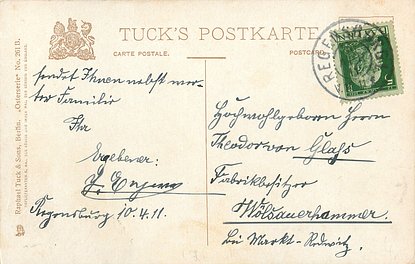 TUCK'S POSTKARTE
CARTE POSTALE.
POSTCARD
REGENSBURG
sendet Ihnen nebst wer-
ter Familie
Ihr
Ergebener:
Regensburg 10.4.11.
Hochwohlgeboren Herrn
Theodor von Glass
Fabrikbesitzer
Wölsauerhammer.
bei Markt-Redwitz.
Raphael Tuck & Sons, Berlin. „Osterserie" No. 261 B.